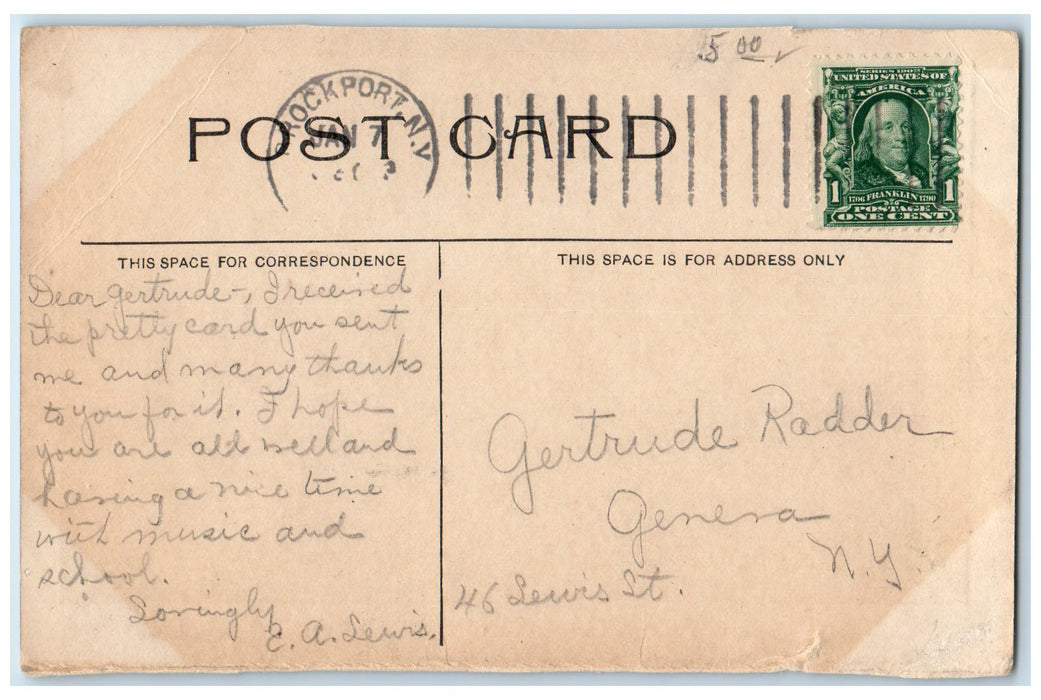 5 00
BROCKPORT, N.Y.
JAN 7
POST CARD
SERIES 1902
UNITED STATES OF
AMERICA
1 1706 FRANKLIN 1790 1
POSTAGE
ONE CENT
THIS SPACE FOR CORRESPONDENCE
THIS SPACE IS FOR ADDRESS ONLY
Dear Gertrude-, I received
the pretty card you sent
me and many thanks
to you for it. I hope
you are all well and
having a nice time
with music and
school.
Lovingly
E. A. Lewis.
Gertrude Radder
Geneva
N.Y.
46 Lewis St.